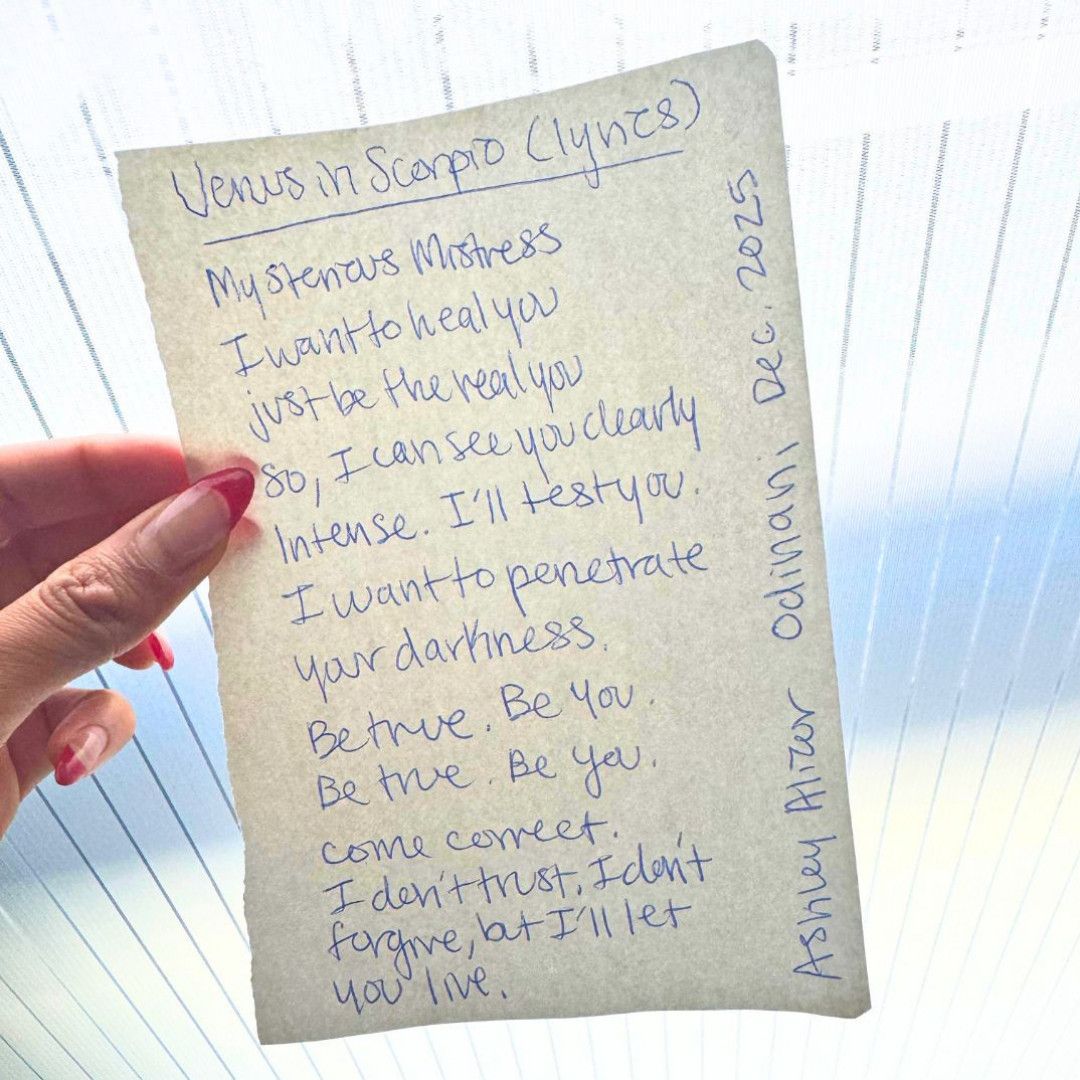 Venus in Scorpio (lyrics)
Mysterious Mistress
I want to heal you
just be the real you
so, I can see you clearly
Intense. I'll test you.
I want to penetrate
your darkness.
Be true. Be You.
Be true. Be You.
come correct.
I don't trust, I don't
forgive, but I'll let
you live.
Ashley Alizor Odinani Dec. 2025